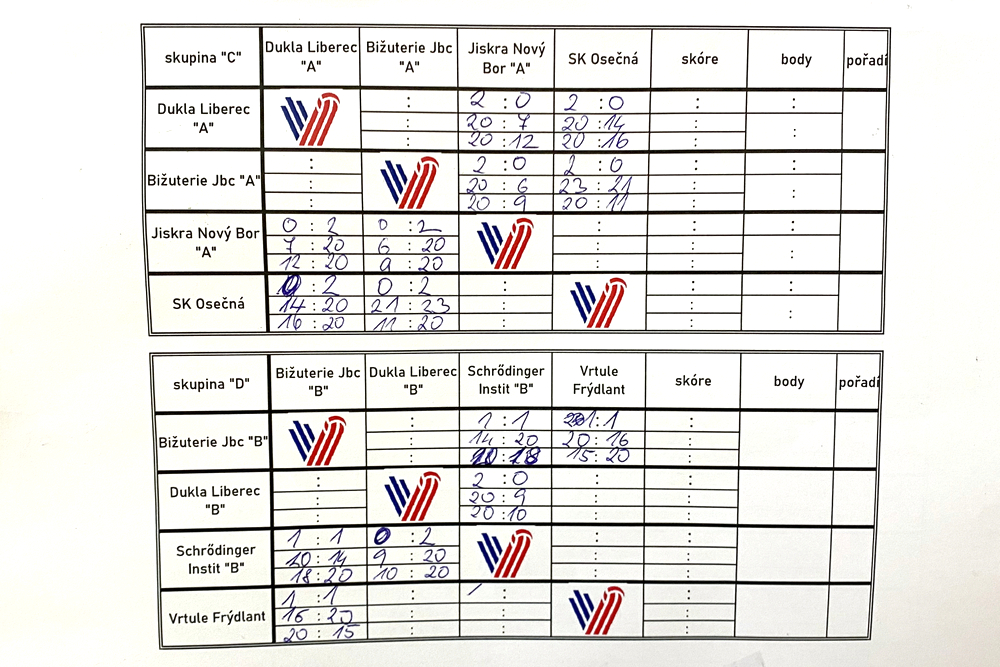 skupina "C" Dukla Liberec "A" Bižuterie Jbc "A" Jiskra Nový Bor "A" SK Osečná skóre body pořadí
Dukla Liberec "A" : 2 : 0 2 : 0 : :
: 20 : 7 20 : 14 : :
: 20 : 12 20 : 16 :
Bižuterie Jbc "A" : 2 : 0 2 : 0 : :
: 20 : 6 23 : 21 : :
: 20 : 9 20 : 11 :
Jiskra Nový Bor "A" 0 : 2 0 : 2 : : :
7 : 20 6 : 20 : : :
12 : 20 9 : 20 : :
SK Osečná 0 : 2 0 : 2 : : :
14 : 20 21 : 23 : : :
16 : 20 11 : 20 : :
skupina "D" Bižuterie Jbc "B" Dukla Liberec "B" Schrődinger Instit "B" Vrtule Frýdlant skóre body pořadí
Bižuterie Jbc "B" : 1 : 1 1 : 1 :
: 14 : 20 20 : 16 :
: : 18 15 : 20 :
Dukla Liberec "B" : 2 : 0 : :
: 20 : 9 : :
: 20 : 10 : :
Schrődinger Instit "B" 1 : 1 0 : 2 : :
20 : 14 9 : 20 : :
18 : 20 10 : 20 : :
Vrtule Frýdlant 1 : 1 : : :
16 : 20 : : :
20 : 15 : : :